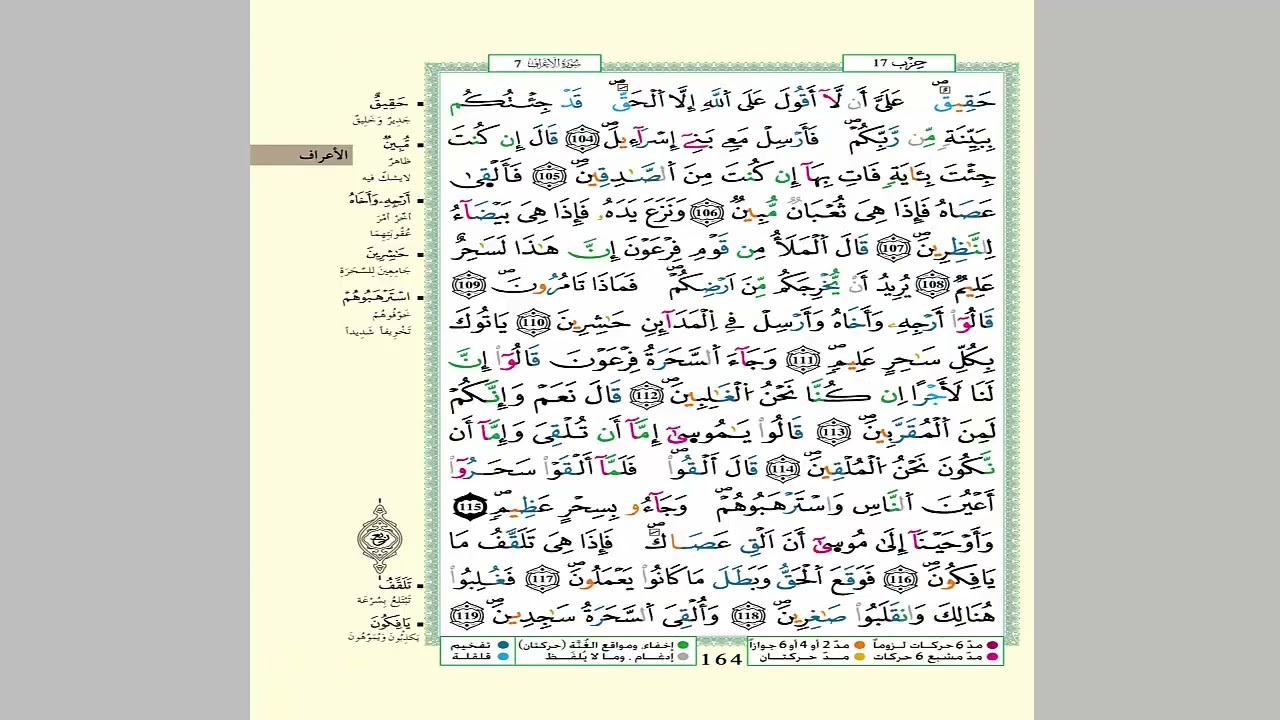 حِزْب 17
سُورَةُ الأَعْرَافِ 7
حَقِيقٌ عَلَيَّ أَن لَّآ أَقُولَ عَلَى اَ۬للَّهِ إِلَّا اَ۬لْحَقَّۖ قَدْ جِئْتُكُم
بِبَيِّنَةٖ مِّن رَّبِّكُمْۖ فَأَرْسِلْ مَعِے بَنِےٓ إِسْرَآءِيلَۖ (104) قَالَ إِن كُنتَ
جِئْتَ بِـَٔايَةٖ فَاتِ بِهَآ إِن كُنتَ مِنَ اَ۬لصَّٰدِقِينَۖ (105) فَأَلْقٰى
عَصَاهُ فَإِذَا هِىَ ثُعْبَانٞ مُّبِينٞۖ (106) وَنَزَعَ يَدَهُۥ فَإِذَا هِىَ بَيْضَآءُ
لِلنَّٰظِرِينَۖ (107) قَالَ اَ۬لْمَلَأُ مِن قَوْمِ فِرْعَوْنَ إِنَّ هَٰذَا لَسَٰحِرٌ
عَلِيمٞ (108) يُرِيدُ أَنْ يُّخْرِجَكُم مِّنَ اَرْضِكُمْۖ فَمَاذَا تَامُرُونَۖ (109)
قَالُوٓاْ أَرْجِهِۦ وَأَخَاهُ وَأَرْسِلْ فِے اِ۬لْمَدَآئِنِ حَٰشِرِينَ (110) يَاتُوكَ
بِكُلِّ سَٰحِرٍ عَلِيمٖۖ (111) وَجَآءَ اَ۬لسَّحَرَةُ فِرْعَوْنَ قَالُوٓاْ إِنَّ
لَنَا لَأَجْرًا اِن كُنَّا نَحْنُ اُ۬لْغَٰلِبِينَۖ (112) قَالَ نَعَمْ وَإِنَّكُمْ
لَمِنَ اَ۬لْمُقَرَّبِينَۖ (113) قَالُواْ يَٰمُوسىٰٓ إِمَّآ أَن تُلْقِىَ وَإِمَّآ أَن
نَّكُونَ نَحْنُ اُ۬لْمُلْقِينَۖ (114) قَالَ أَلْقُواْۖ فَلَمَّآ أَلْقَوْاْ سَحَرُوٓاْ
أَعْيُنَ اَ۬لنَّاسِ وَاسْتَرْهَبُوهُمْۖ وَجَآءُو بِسِحْرٍ عَظِيمٖۖ (115)
وَأَوْحَيْنَآ إِلَىٰ مُوسىٰٓ أَنَ اَلْقِ عَصَاكَۖ فَإِذَا هِىَ تَلَقَّفُ مَا
يَافِكُونَۖ (116) فَوَقَعَ اَ۬لْحَقُّ وَبَطَلَ مَا كَانُواْ يَعْمَلُونَۖ (117) فَغُلِبُواْ
هُنَالِكَ وَانقَلَبُواْ صَٰغِرِينَۖ (118) وَأُلْقِىَ اَ۬لسَّحَرَةُ سَٰجِدِينَۖ (119)
حَقِيقٌ
جَدِيرٌ وَخَلِيقٌ
مُّبِينٌ
ظاهرٌ
لايشكّ فيه
الأعراف
أَرْجِهِۦ وَأَخَاهُ
أخّرْ أمْرَ
عُقُوبَتِهِمَا
حَٰشِرِينَ
جَامِعِينَ لِلسَّحَرَةِ
اسْتَرْهَبُوهُمْ
خَوَّفُوهُمْ
تَخْوِيفاً شَدِيداً
ربع
تَلَقَّفُ
تَبْتَلِعُ بِسُرْعَة
يَافِكُونَ
يَكْذِبُونَ وَيُمَوِّهُونَ
مدّ 6 حركات لـزوماً
مدّ 2 أو 4 أو 6 جوازاً
مدّ مشبع 6 حركات
مـدّ حـركتـان
164
إخفاء، ومواقع الغُنَّة (حركتان)
إدغـام ، ومـا لا يُلفَـظ
تفخيم
قلقلة